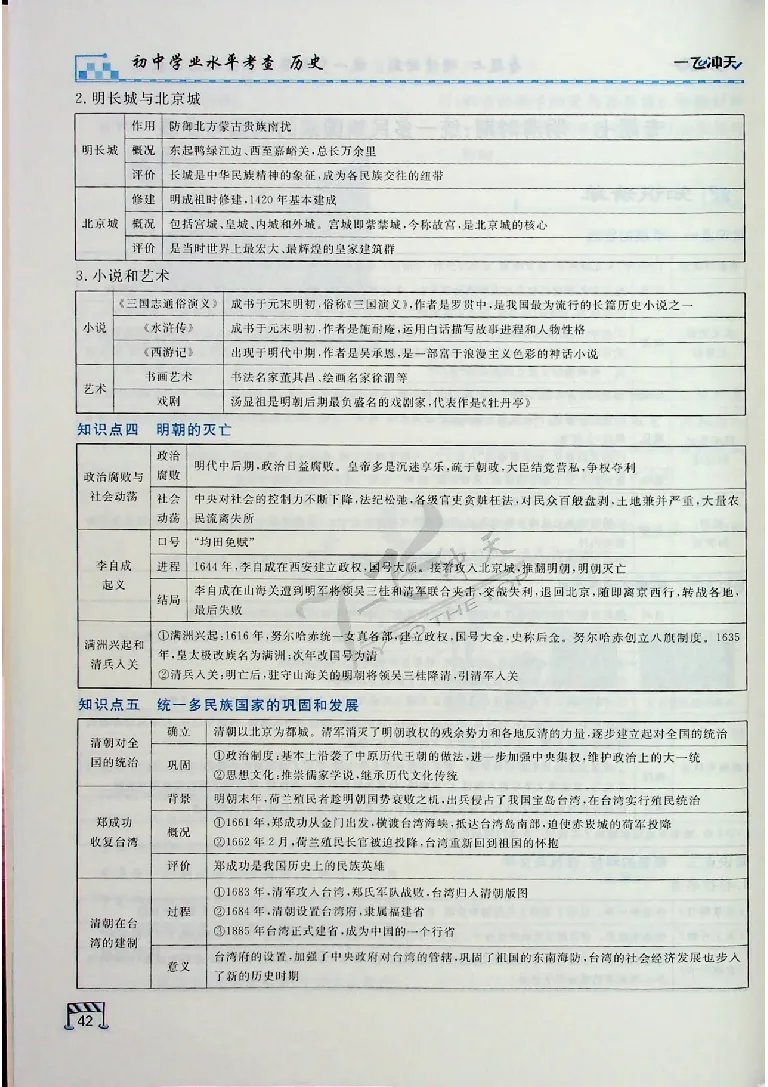 初中学业水平考查 历史
一飞冲天
2. 明长城与北京城
明长城
作用 防御北方蒙古贵族南扰
概况 东起鸭绿江边、西至嘉峪关,总长万余里
评价 长城是中华民族精神的象征,成为各民族交往的纽带
北京城
修建 明成祖时修建,1420 年基本建成
概况 包括宫城、皇城、内城和外城。宫城即紫禁城,今称故宫,是北京城的核心
评价 是当时世界上最宏大、最辉煌的皇家建筑群
3. 小说和艺术
小说
《三国志通俗演义》 成书于元末明初,俗称《三国演义》,作者是罗贯中,是我国最为流行的长篇历史小说之一
《水浒传》 成书于元末明初,作者是施耐庵,运用白话描写故事进程和人物性格
《西游记》 出现于明代中期,作者是吴承恩,是一部富于浪漫主义色彩的神话小说
艺术
书画艺术 书法名家董其昌、绘画名家徐渭等
戏剧 汤显祖是明朝后期最负盛名的戏剧家,代表作是《牡丹亭》
知识点四 明朝的灭亡
政治腐败与
社会动荡
政治
腐败
明代中后期,政治日益腐败。皇帝多是沉迷享乐,疏于朝政,大臣结党营私,争权夺利
社会
动荡
中央对社会的控制力不断下降,法纪松弛,各级官吏贪赃枉法,对民众百般盘剥,土地兼并严重,大量农
民流离失所
李自成
起义
口号 “均田免赋”
进程 1644 年,李自成在西安建立政权,国号大顺。接着攻入北京城,推翻明朝,明朝灭亡
结局
李自成在山海关遭到明军将领吴三桂和清军联合夹击,交战失利,退回北京,随即离京西行,转战各地,
最后失败
满洲兴起和
清兵入关
①满洲兴起:1616 年,努尔哈赤统一女真各部,建立政权,国号大金,史称后金。努尔哈赤创立八旗制度。1635
年,皇太极改族名为满洲;次年改国号为清
②清兵入关:明亡后,驻守山海关的明朝将领吴三桂降清,引清军入关
知识点五 统一多民族国家的巩固和发展
清朝对全
国的统治
确立 清朝以北京为都城。清军消灭了明朝政权的残余势力和各地反清的力量,逐步建立起对全国的统治
巩固
①政治制度:基本上沿袭了中原历代王朝的做法,进一步加强中央集权,维护政治上的大一统
②思想文化:推崇儒家学说,继承历代文化传统
郑成功
收复台湾
背景 明朝末年,荷兰殖民者趁明朝国势衰败之机,出兵侵占了我国宝岛台湾,在台湾实行殖民统治
概况
①1661 年,郑成功从金门出发,横渡台湾海峡,抵达台湾岛南部,迫使赤崁城的荷军投降
②1662 年 2 月,荷兰殖民长官被迫投降,台湾重新回到祖国的怀抱
评价 郑成功是我国历史上的民族英雄
清朝在台
湾的建制
过程
①1683 年,清军攻入台湾,郑氏军队战败,台湾归入清朝版图
②1684 年,清朝设置台湾府,隶属福建省
③1885 年台湾正式建省,成为中国的一个行省
意义
台湾府的设置,加强了中央政府对台湾的管辖,巩固了祖国的东南海防,台湾的社会经济发展也步入
了新的历史时期
42